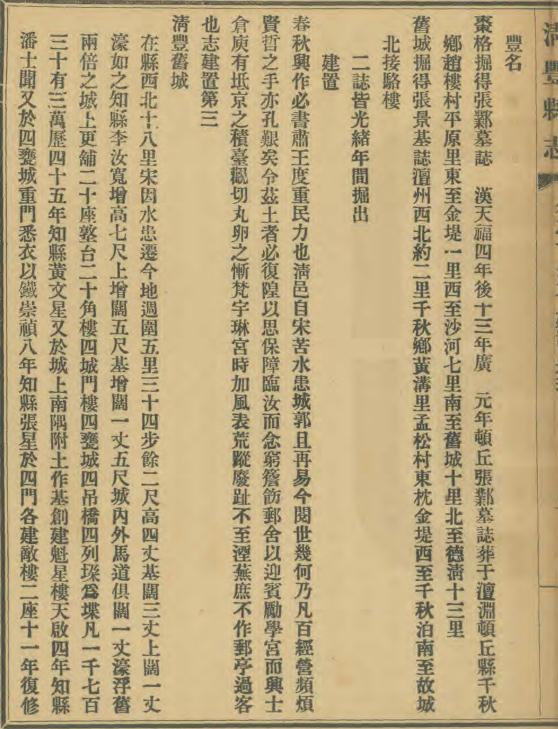 清豐縣志
豐名
棗格掘得張鄴墓誌　漢天福四年後十三年廣　元年頓丘張鄴墓誌葬于澶淵頓丘縣千秋
鄉趙樓村平原里東至金堤一里西至沙河七里南至舊城十里北至德清十三里
舊城掘得張景基誌澶州西北約二里千秋鄉黃溝里孟松村東枕金堤西至千秋泊南至故城
北接駱樓
二誌皆光緒年間掘出
建置
春秋興作必書肅王度重民力也清邑自宋苦水患城郭且再易今閱世幾何乃凡百經營頻煩
賢哲之手亦孔艱矣今茲土者必復隍以思保障臨汝而念窮簷飭郵舍以迎賓勵學宮而興士
倉庾有坻京之積臺觀切丸卵之慚梵宇琳宮時加風表荒蹤廢趾不至湮蕪庶不作郵亭過客
也志建置第三
清豐舊城
在縣西北十八里宋因水患遷今地週圍五里三十四步餘二尺高四丈基闊三丈上闊一丈
濠如之知縣李汝寬增高七尺上增闊五尺基增闊一丈五尺城內外馬道俱闊一丈濠浮舊
兩倍之城上更舖二十座墪台二十角樓四城門樓四甕城四吊橋四列垜為堞凡一千七百
三十有三萬歷四十五年知縣黃文星又於城上南隅附土作基創建魁星樓天啟四年知縣
潘士聞又於四甕城重門悉衣以鐵崇禎八年知縣張星於四門各建敵樓二座十一年復修